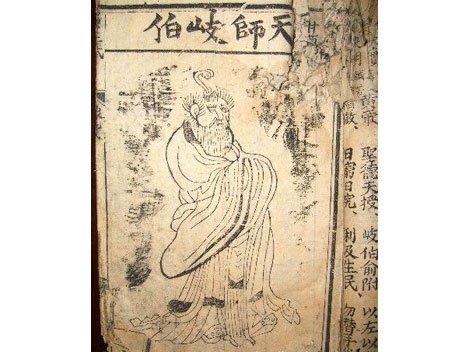 聖德天授、岐伯俞附、以左以
日窮日究、利及生民、勿替千
天師岐伯